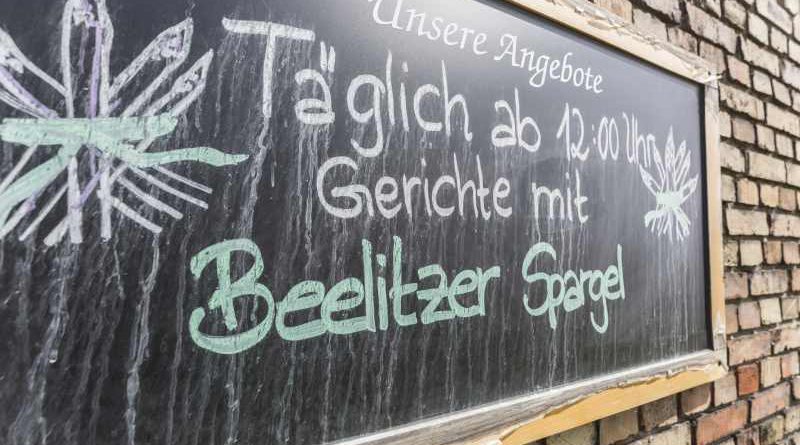 Unsere Angebote
Täglich ab 12:00 Uhr
Gerichte mit
Beelitzer Spargel